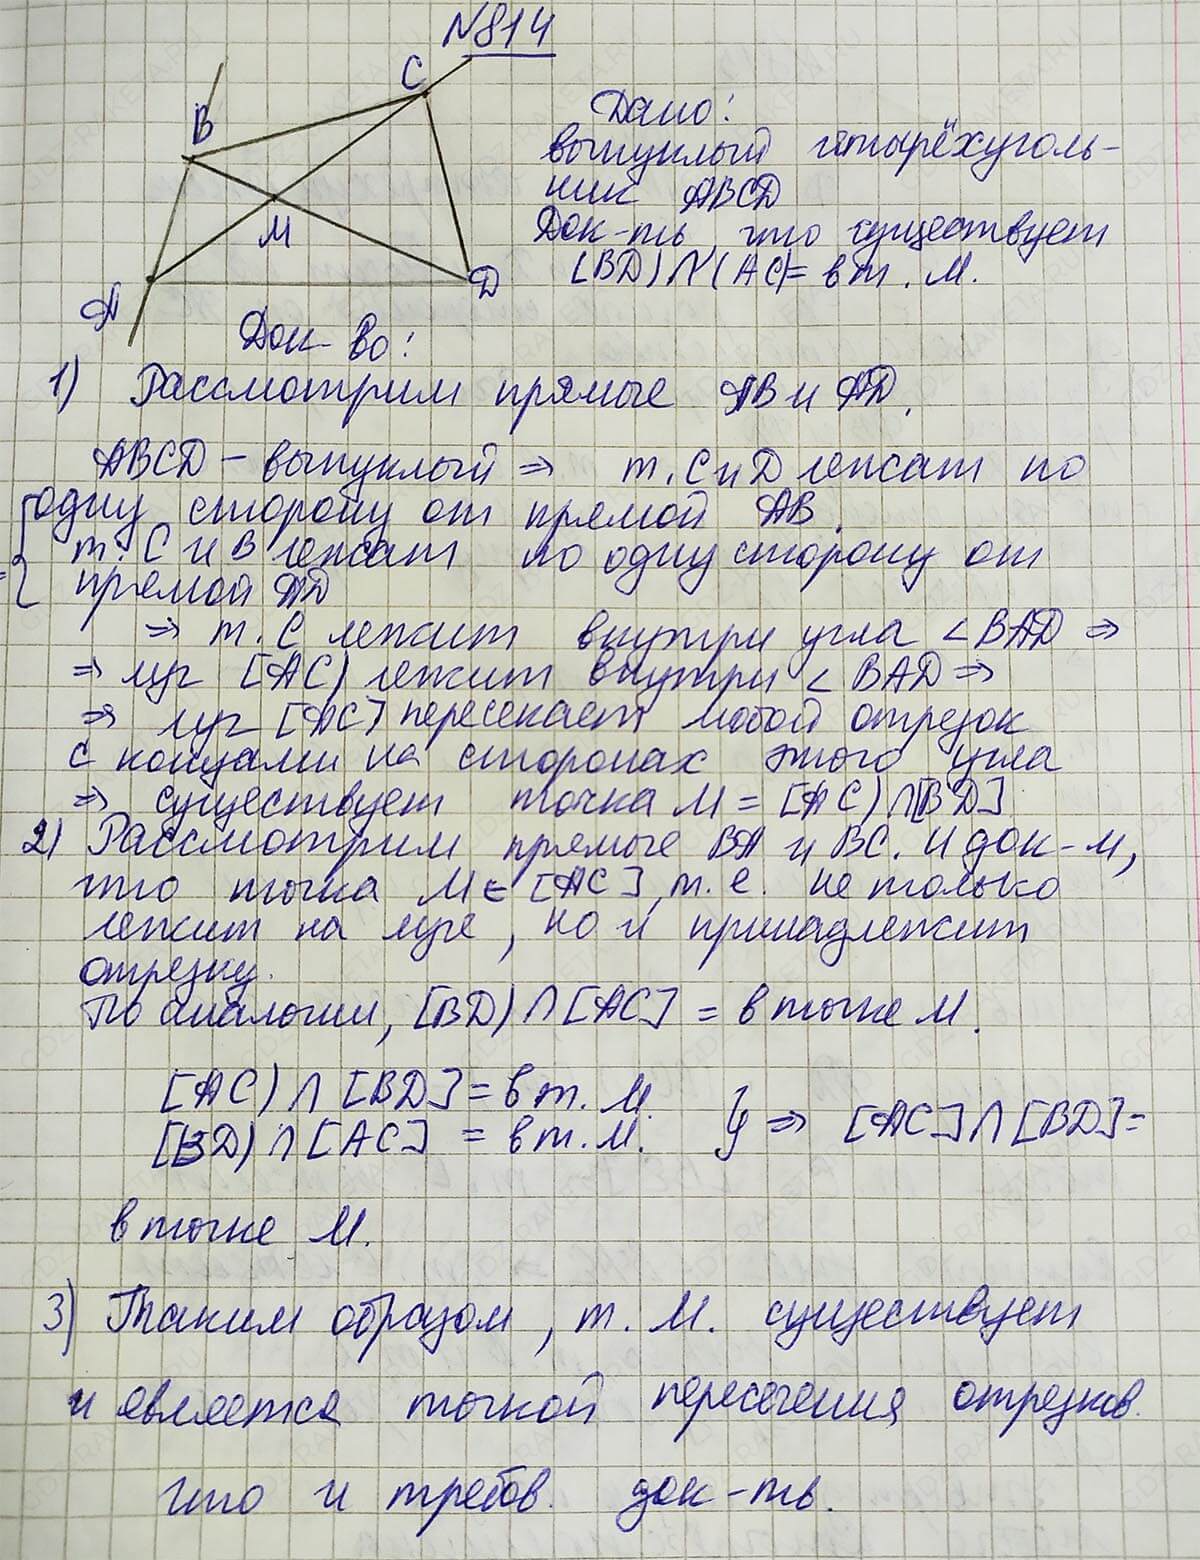 №814
C
B
M
A
D
Дано:
выпуклый четырёхуголь-
ник ABCD
Док-ть, что существует
[BD) ∩ (AC) = в т. M.
Док-во:
1) Рассмотрим прямые AB и AD.
ABCD – выпуклый ⇒ т. C и D лежат по
одну сторону от прямой AB.
т. C и B лежат по одну сторону от
прямой AD
⇒ т. C лежит внутри угла ∠BAD ⇒
⇒ луч [AC) лежит внутри ∠BAD ⇒
⇒ луч [AC] пересекает любой отрезок
с концами на сторонах этого угла
⇒ существует точка M = [AC) ∩ [BD]
2) Рассмотрим прямые BA и BC. И док-м,
что точка M ∈ [AC], т. е. не только
лежит на луче, но и принадлежит
отрезку.
По аналогии, [BD) ∩ [AC] = в точке M.
[AC) ∩ [BD] = в т. M.
[BD) ∩ [AC] = в т. M. } ⇒ [AC] ∩ [BD] =
в точке M.
3) Таким образом, т. M. существует
и является точкой пересечения отрезков.
что и требов. док-ть.